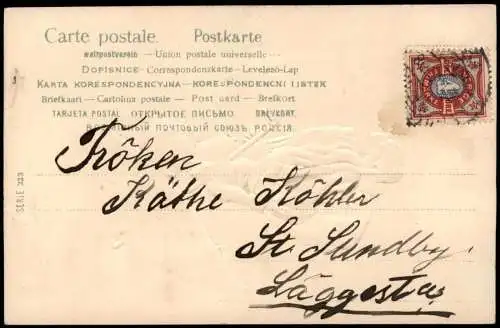 Carte postale. Postkarte
Weltpostverein — Union postale universelle
Dopisnice — Correspondenzkarte — Levelező-Lap
Karta korespondencyjna — Korespondencni listek
Briefkaart — Cartolina postale — Post card — Brefkort
Tarjeta postal ОТКРЫТОЕ ПИСЬМО Brevkort
ВСЕМІРНЫЙ ПОЧТОВЫЙ СОЮЗЪ РОССІЯ
Fröken
Käthe Köhler
St. Sundby.
Läggesta
SERIE 333